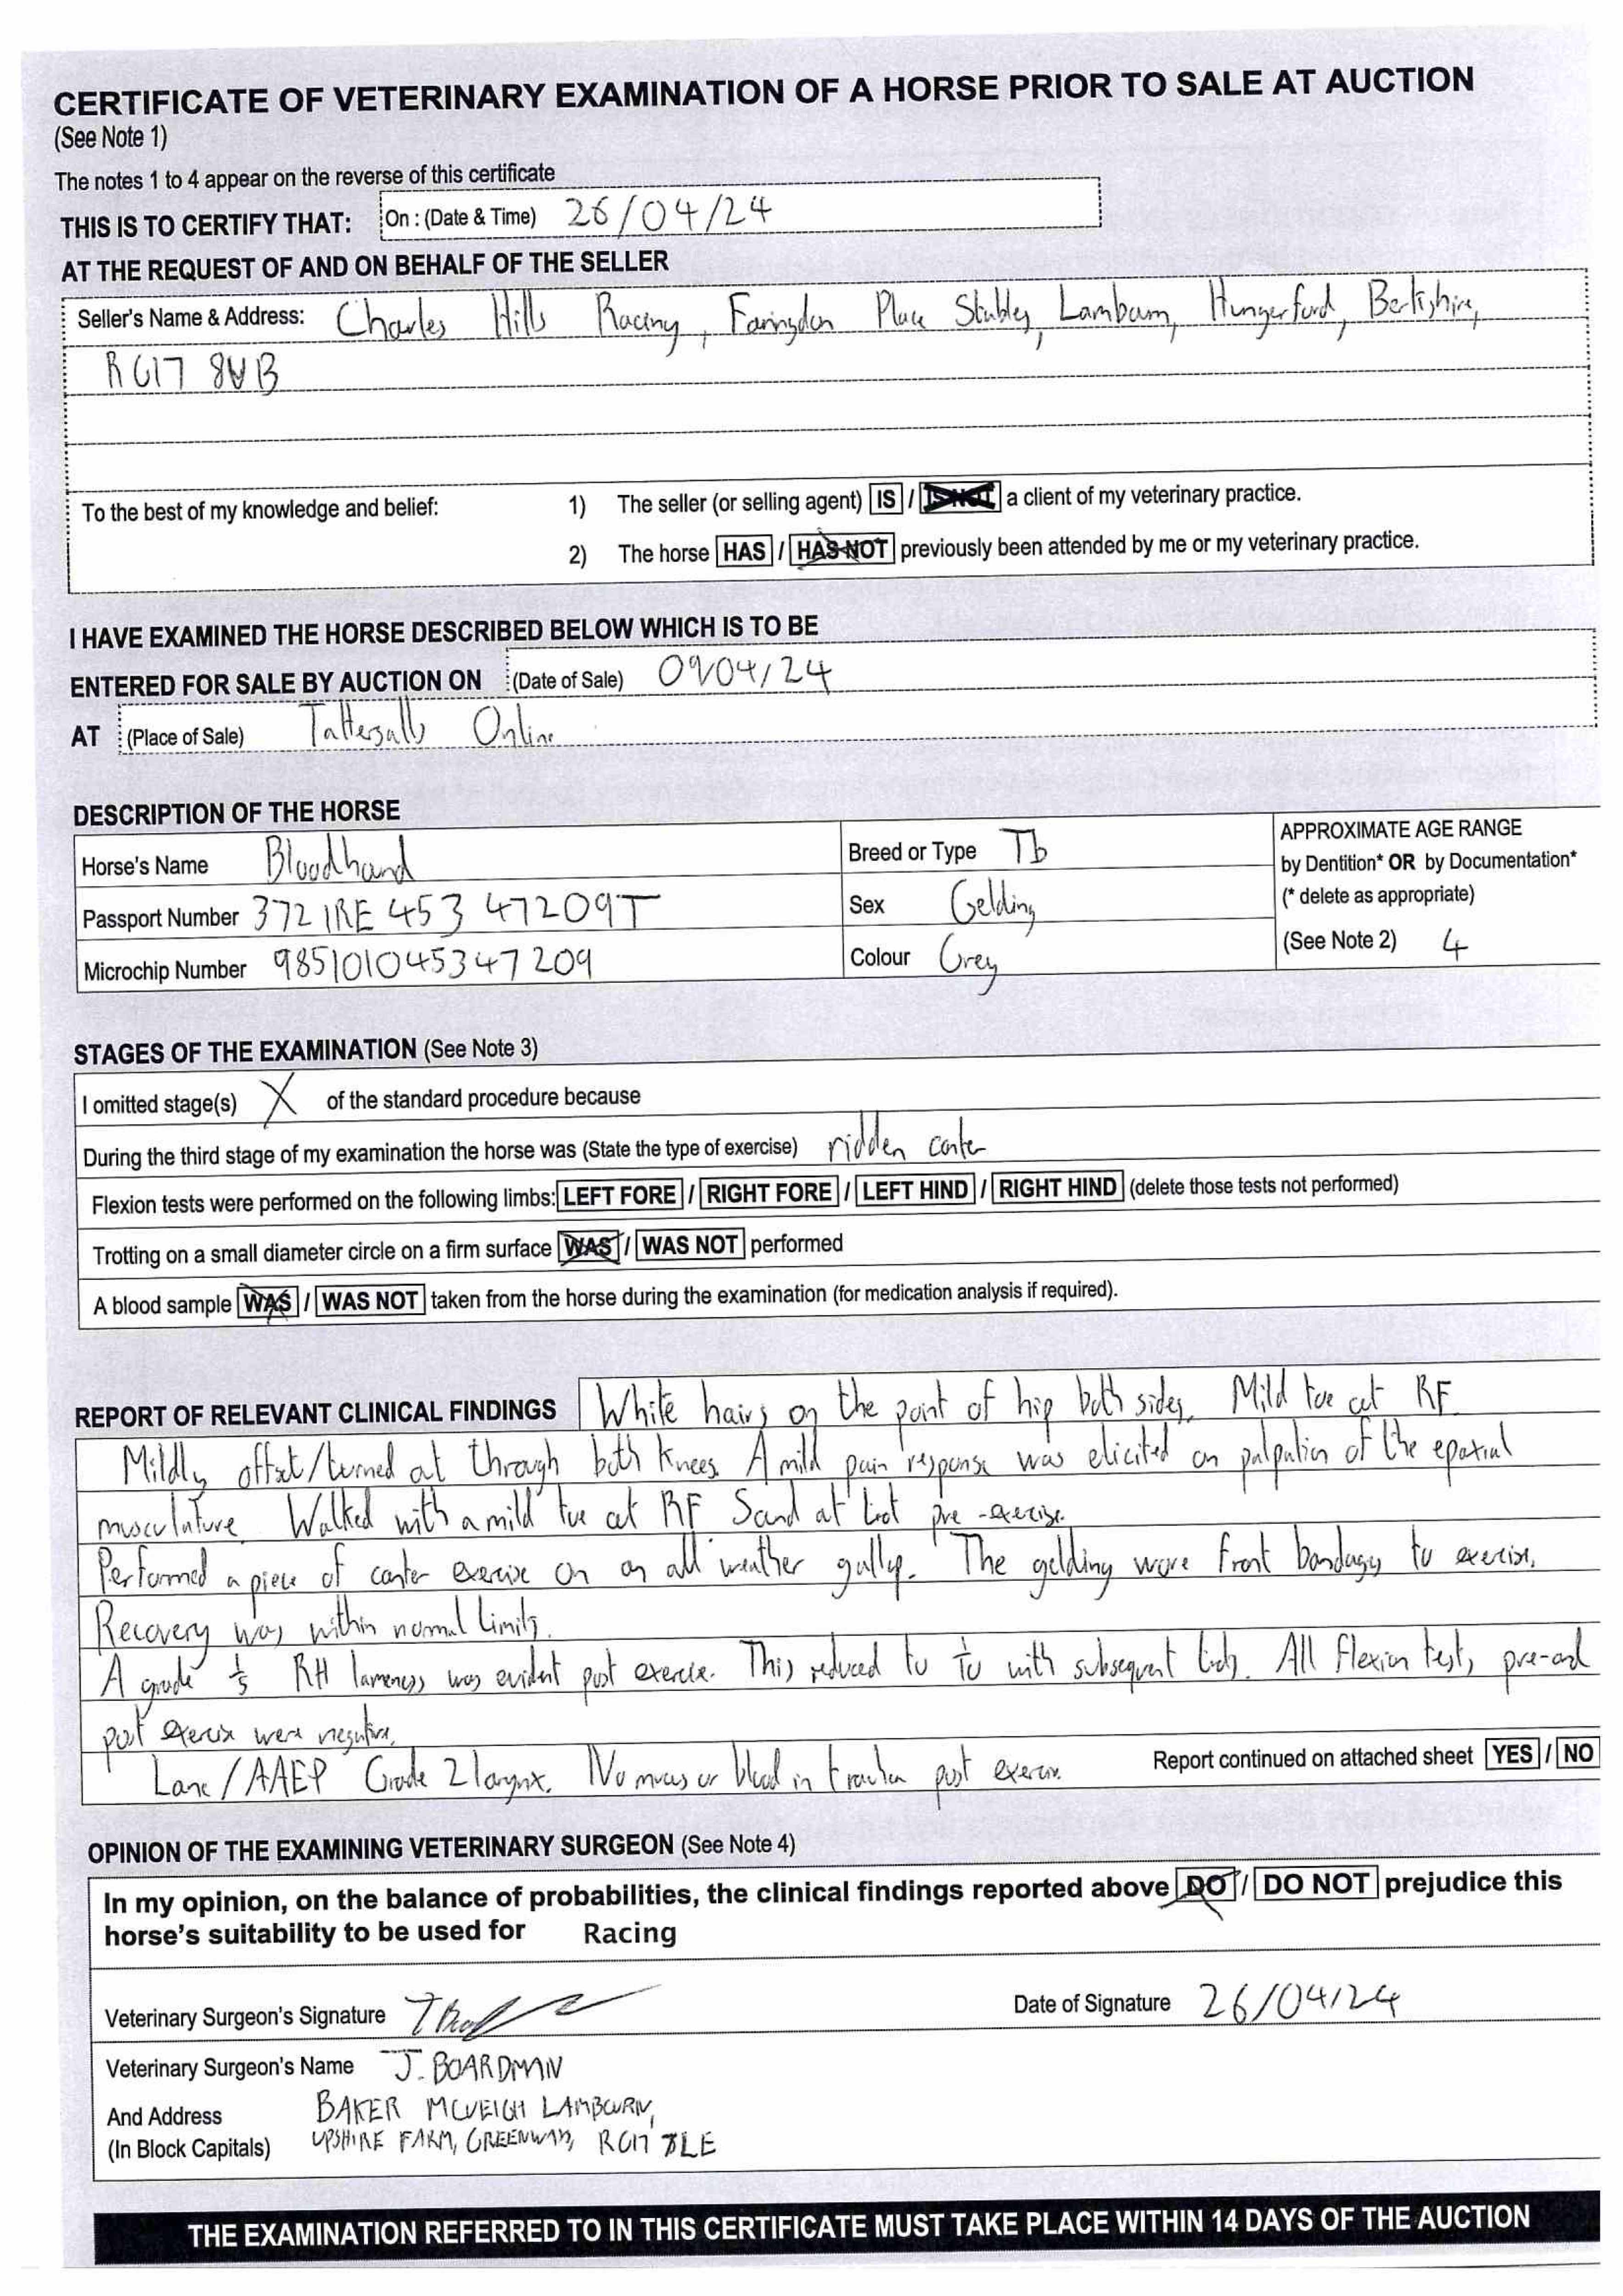 CERTIFICATE OF VETERINARY EXAMINATION OF A HORSE PRIOR TO SALE AT AUCTION
(See Note 1)
The notes 1 to 4 appear on the reverse of this certificate
THIS IS TO CERTIFY THAT: On : (Date & Time) 26/04/24
AT THE REQUEST OF AND ON BEHALF OF THE SELLER
Seller's Name & Address: Charles Hills Racing, Faringdon Place Stables, Lambourn, Hungerford, Berkshire,
RG17 8UB
To the best of my knowledge and belief: 1) The seller (or selling agent) IS / IS NOT a client of my veterinary practice.
2) The horse HAS / HAS NOT previously been attended by me or my veterinary practice.
I HAVE EXAMINED THE HORSE DESCRIBED BELOW WHICH IS TO BE
ENTERED FOR SALE BY AUCTION ON (Date of Sale) 09/04/24
AT (Place of Sale) Tattersalls Online
DESCRIPTION OF THE HORSE
Horse's Name Bloodhand Breed or Type Tb APPROXIMATE AGE RANGE
by Dentition* OR by Documentation*
Passport Number 372 IRE 453 47209T Sex Gelding (* delete as appropriate)
Microchip Number 985101045347209 Colour Grey (See Note 2) 4
STAGES OF THE EXAMINATION (See Note 3)
I omitted stage(s) X of the standard procedure because
During the third stage of my examination the horse was (State the type of exercise) ridden canter
Flexion tests were performed on the following limbs: LEFT FORE / RIGHT FORE / LEFT HIND / RIGHT HIND (delete those tests not performed)
Trotting on a small diameter circle on a firm surface WAS / WAS NOT performed
A blood sample WAS / WAS NOT taken from the horse during the examination (for medication analysis if required).
REPORT OF RELEVANT CLINICAL FINDINGS White hairs on the point of hip both sides. Mild toe out RF.
Mildly offset/turned out through both knees. A mild pain response was elicited on palpation of the epaxial
musculature. Walked with a mild toe out RF Sound at trot pre-exercise.
Performed a piece of canter exercise on an all weather gallop. The gelding wore front bandages to exercise.
Recovery was within normal limits.
A grade 1/5 RH lameness was evident post exercise. This reduced to 1/10 with subsequent trots. All flexion tests, pre-and
post exercise were negative.
Lane/AAEP Grade 2 larynx. No mucus or blood in trachea post exercise. Report continued on attached sheet YES / NO
OPINION OF THE EXAMINING VETERINARY SURGEON (See Note 4)
In my opinion, on the balance of probabilities, the clinical findings reported above DO / DO NOT prejudice this
horse's suitability to be used for Racing
Veterinary Surgeon's Signature Date of Signature 26/04/24
Veterinary Surgeon's Name J. BOARDMAN
And Address BAKER MCVEIGH LAMBOURN,
(In Block Capitals) UPSHIRE FARM, GREENWAYS, RG17 7LE
THE EXAMINATION REFERRED TO IN THIS CERTIFICATE MUST TAKE PLACE WITHIN 14 DAYS OF THE AUCTION